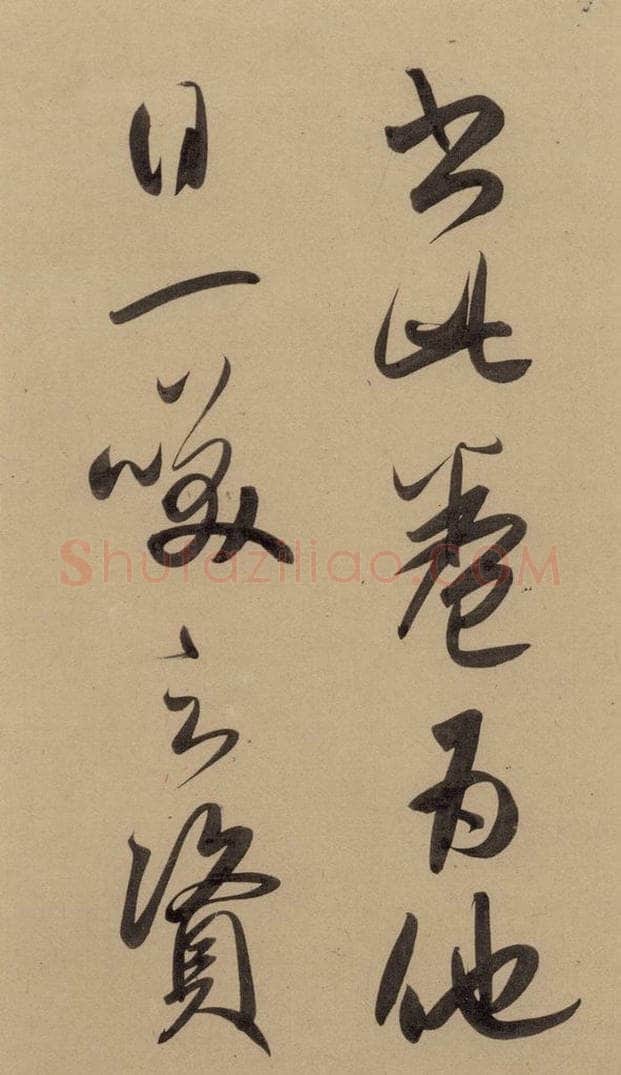 書此卷為他
日一笑之資
Shufaziliao.COM